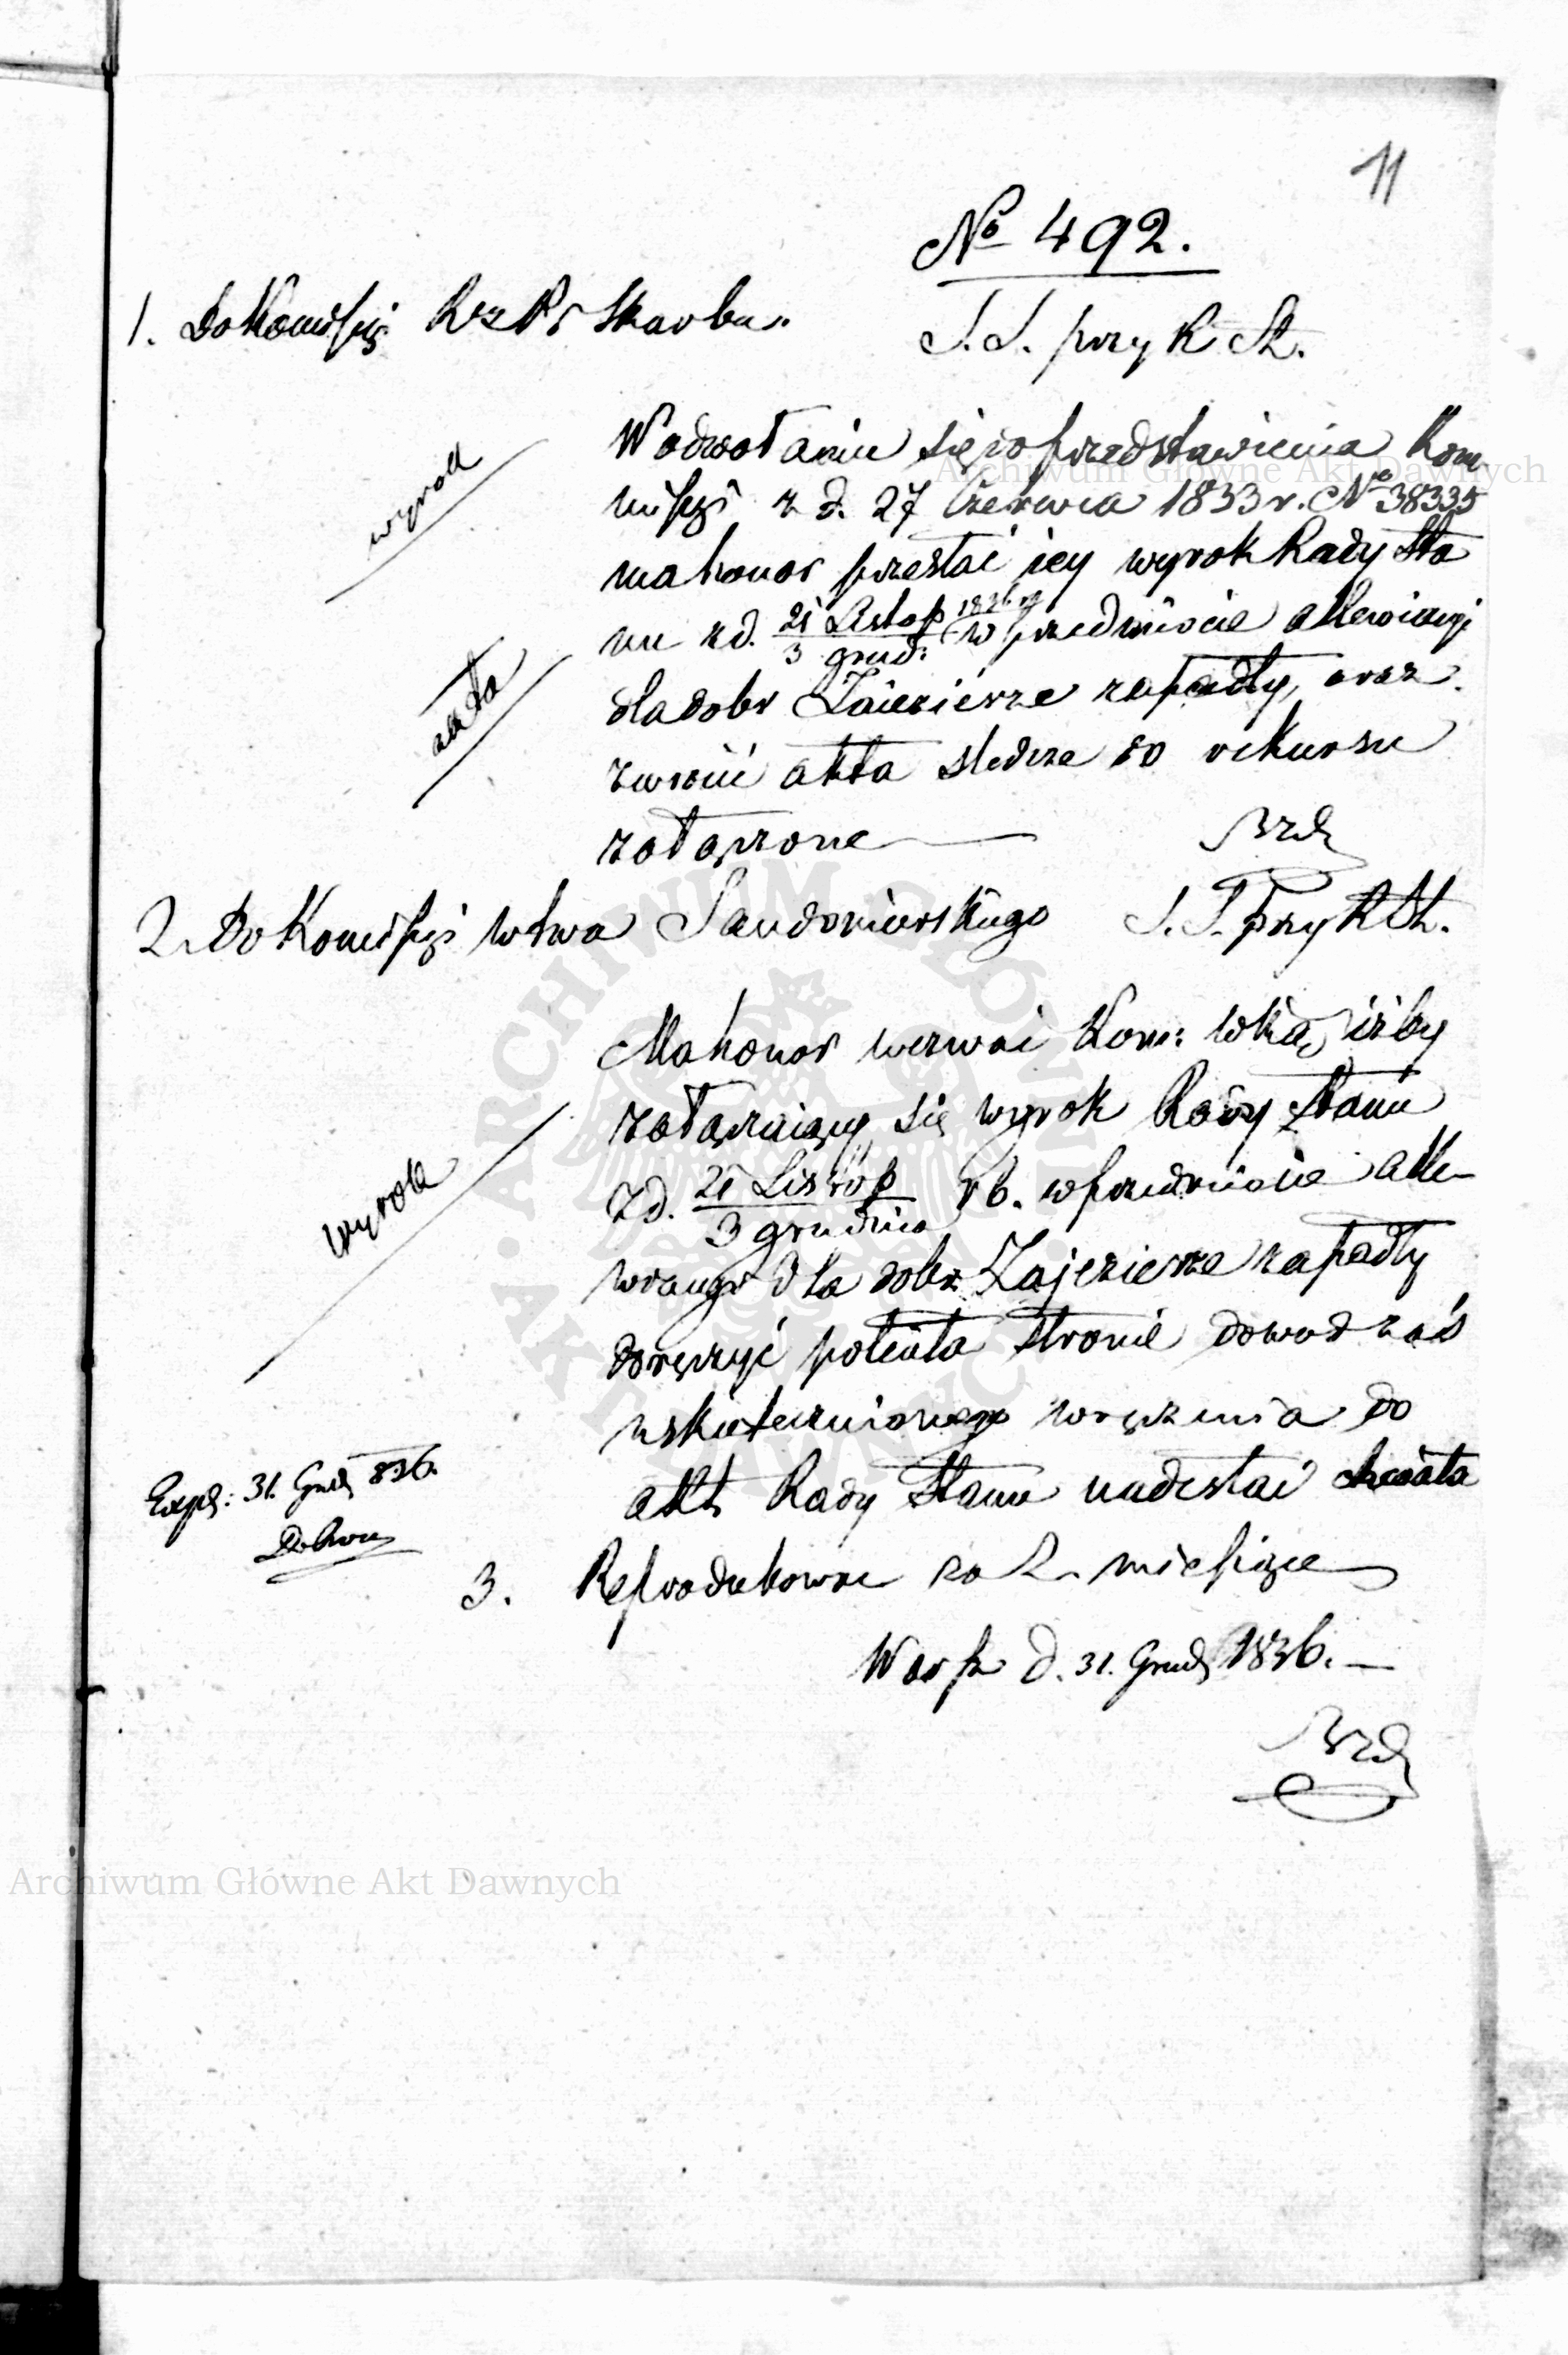 11
№ 492.
1. Do Komissyi Rz Pr Skarbu.
S. S. przy R St.
W odwołaniu się do przedstawienia Kom
missyi z d. 27 Czerwca 1833 r. № 38335
wyrok
ma honor przesłać iey wyrok Rady Sta
nu z d. 21 Listop / 3 grud: 1836 r. w przedmiocie allewiacyi
akta
dla dobr Zaiezierze zapadły, oraz
zwrócić akta śledcze do rekursu
załączone
2. Do Komissyi Wtwa Sandomierskiego
S. S. przy R St.
Ma honor wezwać Kom: Wką, iżby
załączaiący się wyrok Rady Stanu
z d. 21 Listop / 3 grudnia rb. w przedmiocie alle-
wyrok
wiacyi dla dobr Zajezierze zapadły
doręczyć potciała stronie dowod zaś
uskutecznionego wręczenia do
akt Rady Stanu nadesłać chciała
Exp: 31. Grud 836.
3. Reprodukować za 2 miesiące
Warsz d. 31. Grud 1836.
Archiwum Główne Akt Dawnych
Archiwum Główne Akt Dawnych
ARCHIWUM GŁÓWNE AKT DAWNYCH